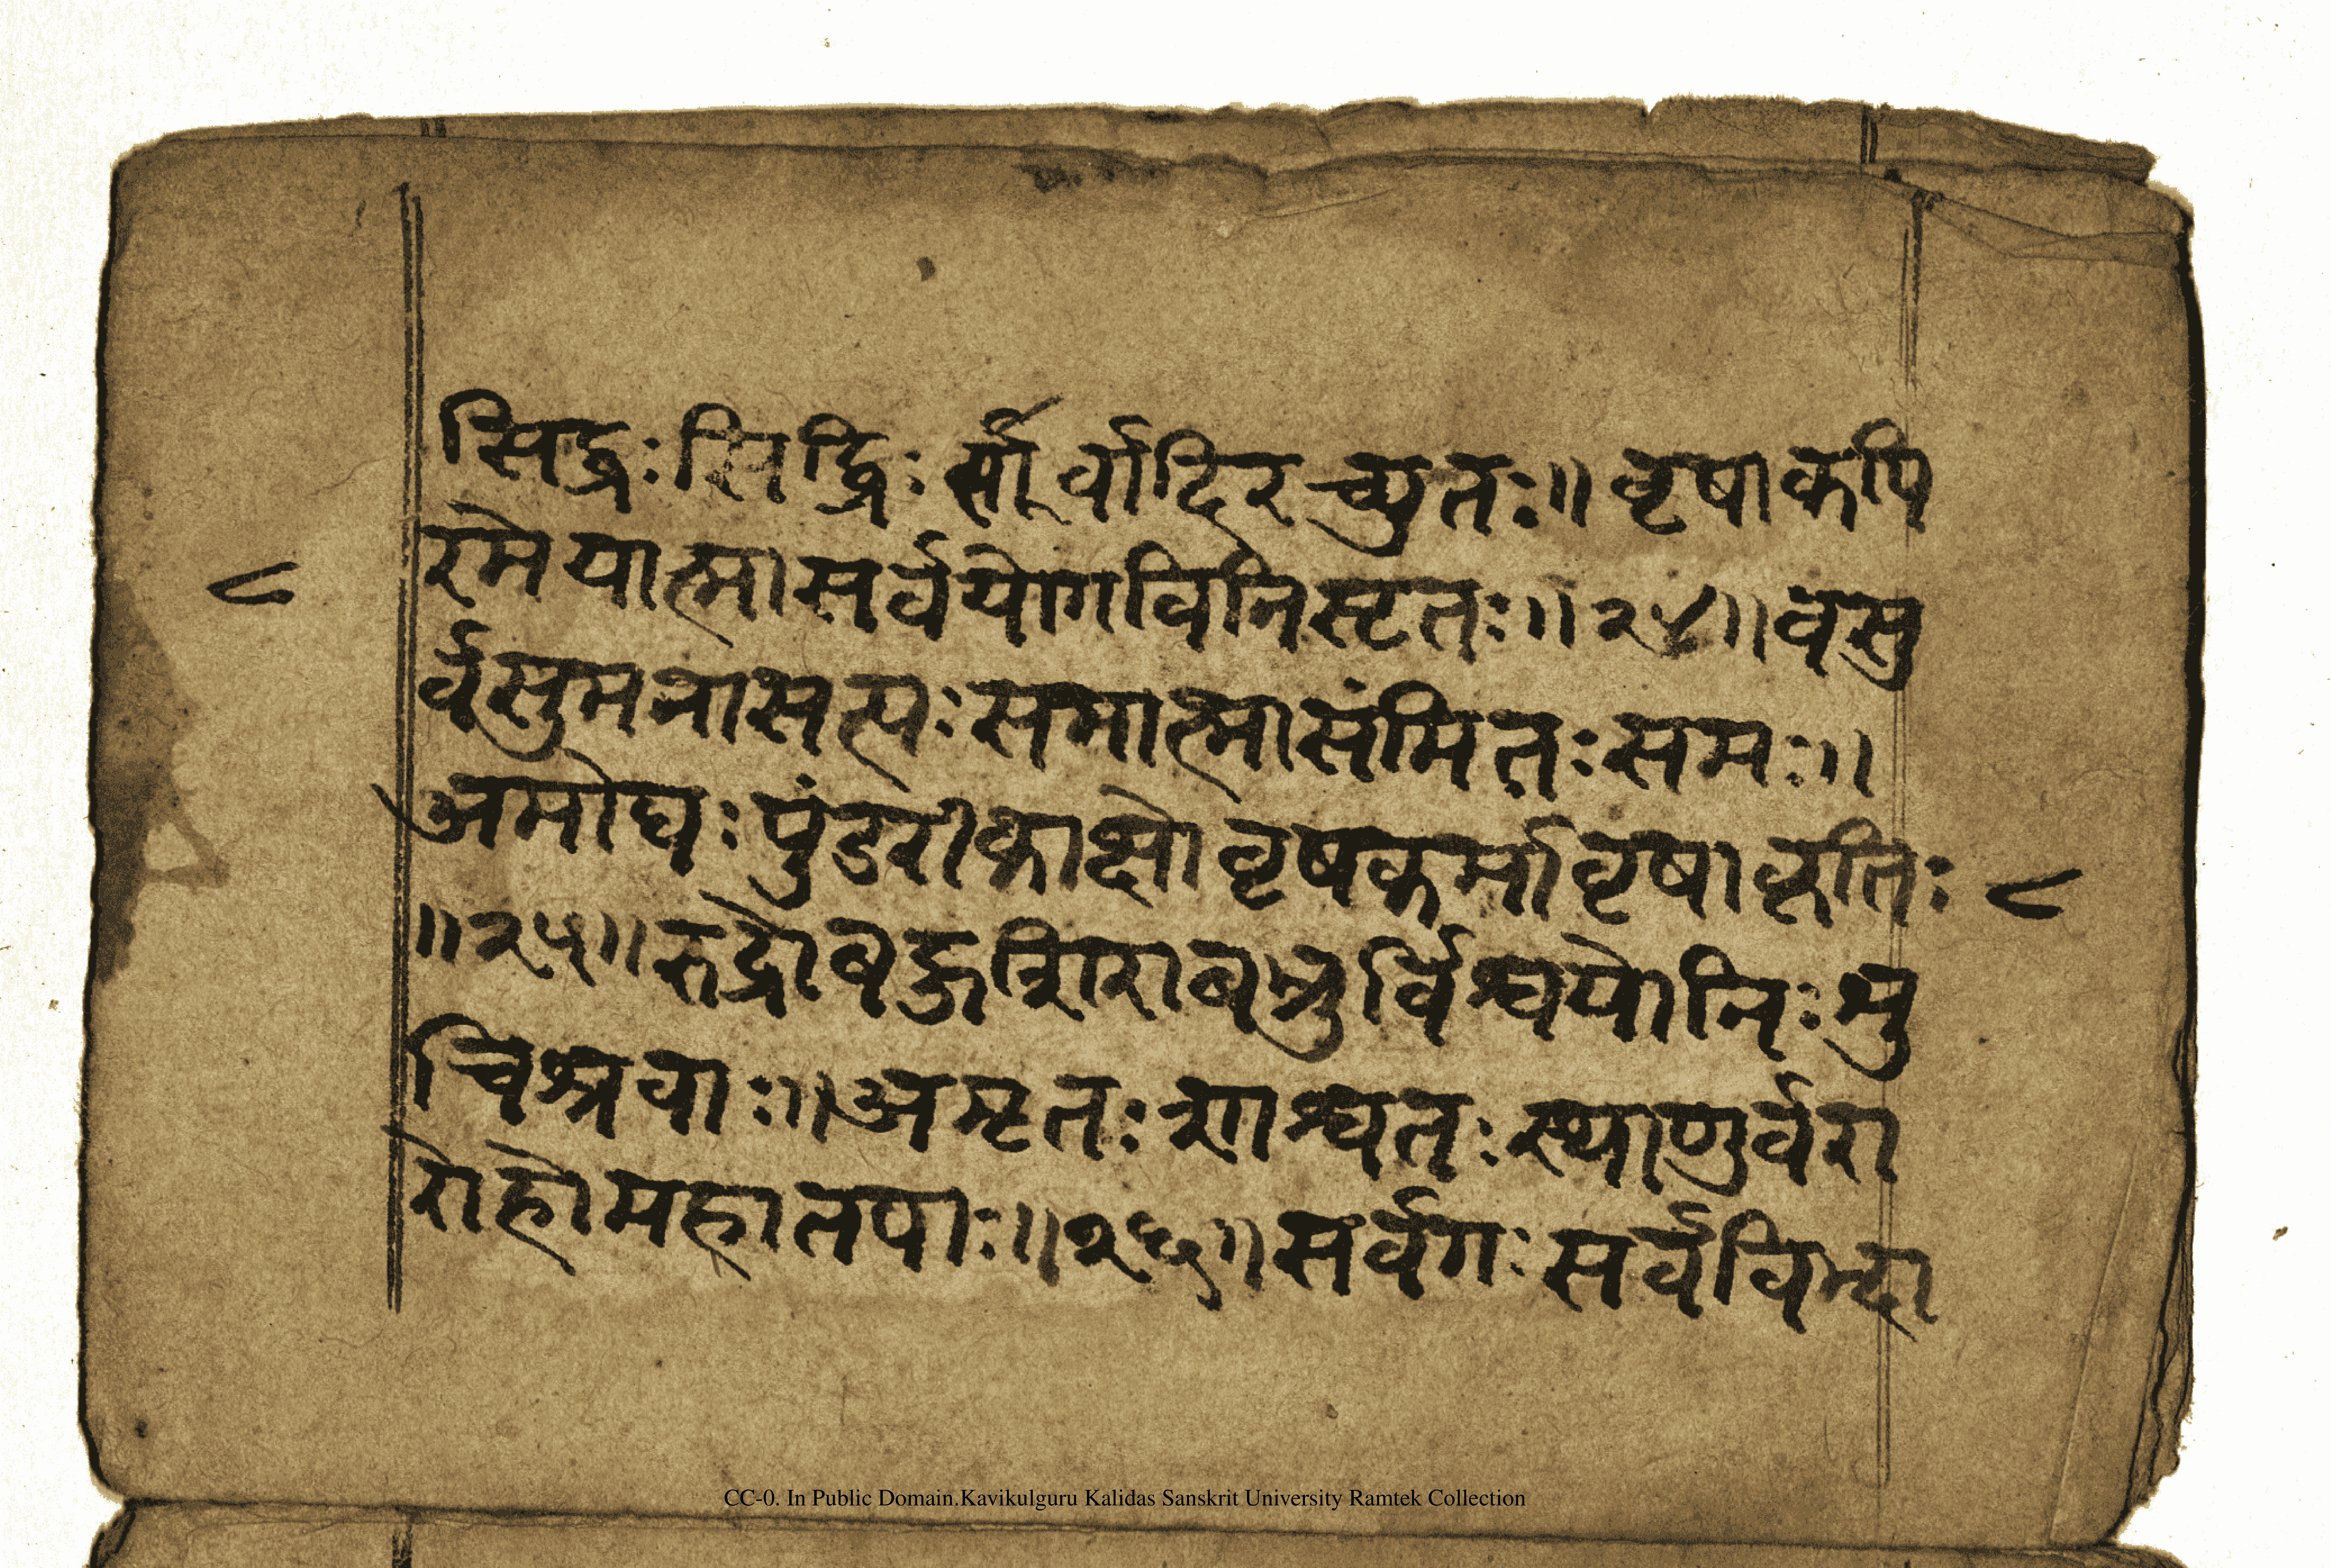 सिद्धः सिद्धिः सर्वादिरच्युतः॥ वृषाकपि
रमेयात्मासर्वयोगविनिसृतः॥२४॥वसु
८
र्वसुमनासत्यः समात्मासंमितः समः॥
अमोघः पुंडरीकाक्षो वृषकर्मावृषाकृतिः
८
॥२५॥रुद्रोबहुशिराबभ्रुर्विश्वयोनिः शु
चिश्रवाः॥अमृतः शाश्वतः स्थाणुर्वरा
रोहोमहातपाः॥२६॥सर्वगः सर्वविद्भा
CC-0. In Public Domain.Kavikulguru Kalidas Sanskrit University Ramtek Collection